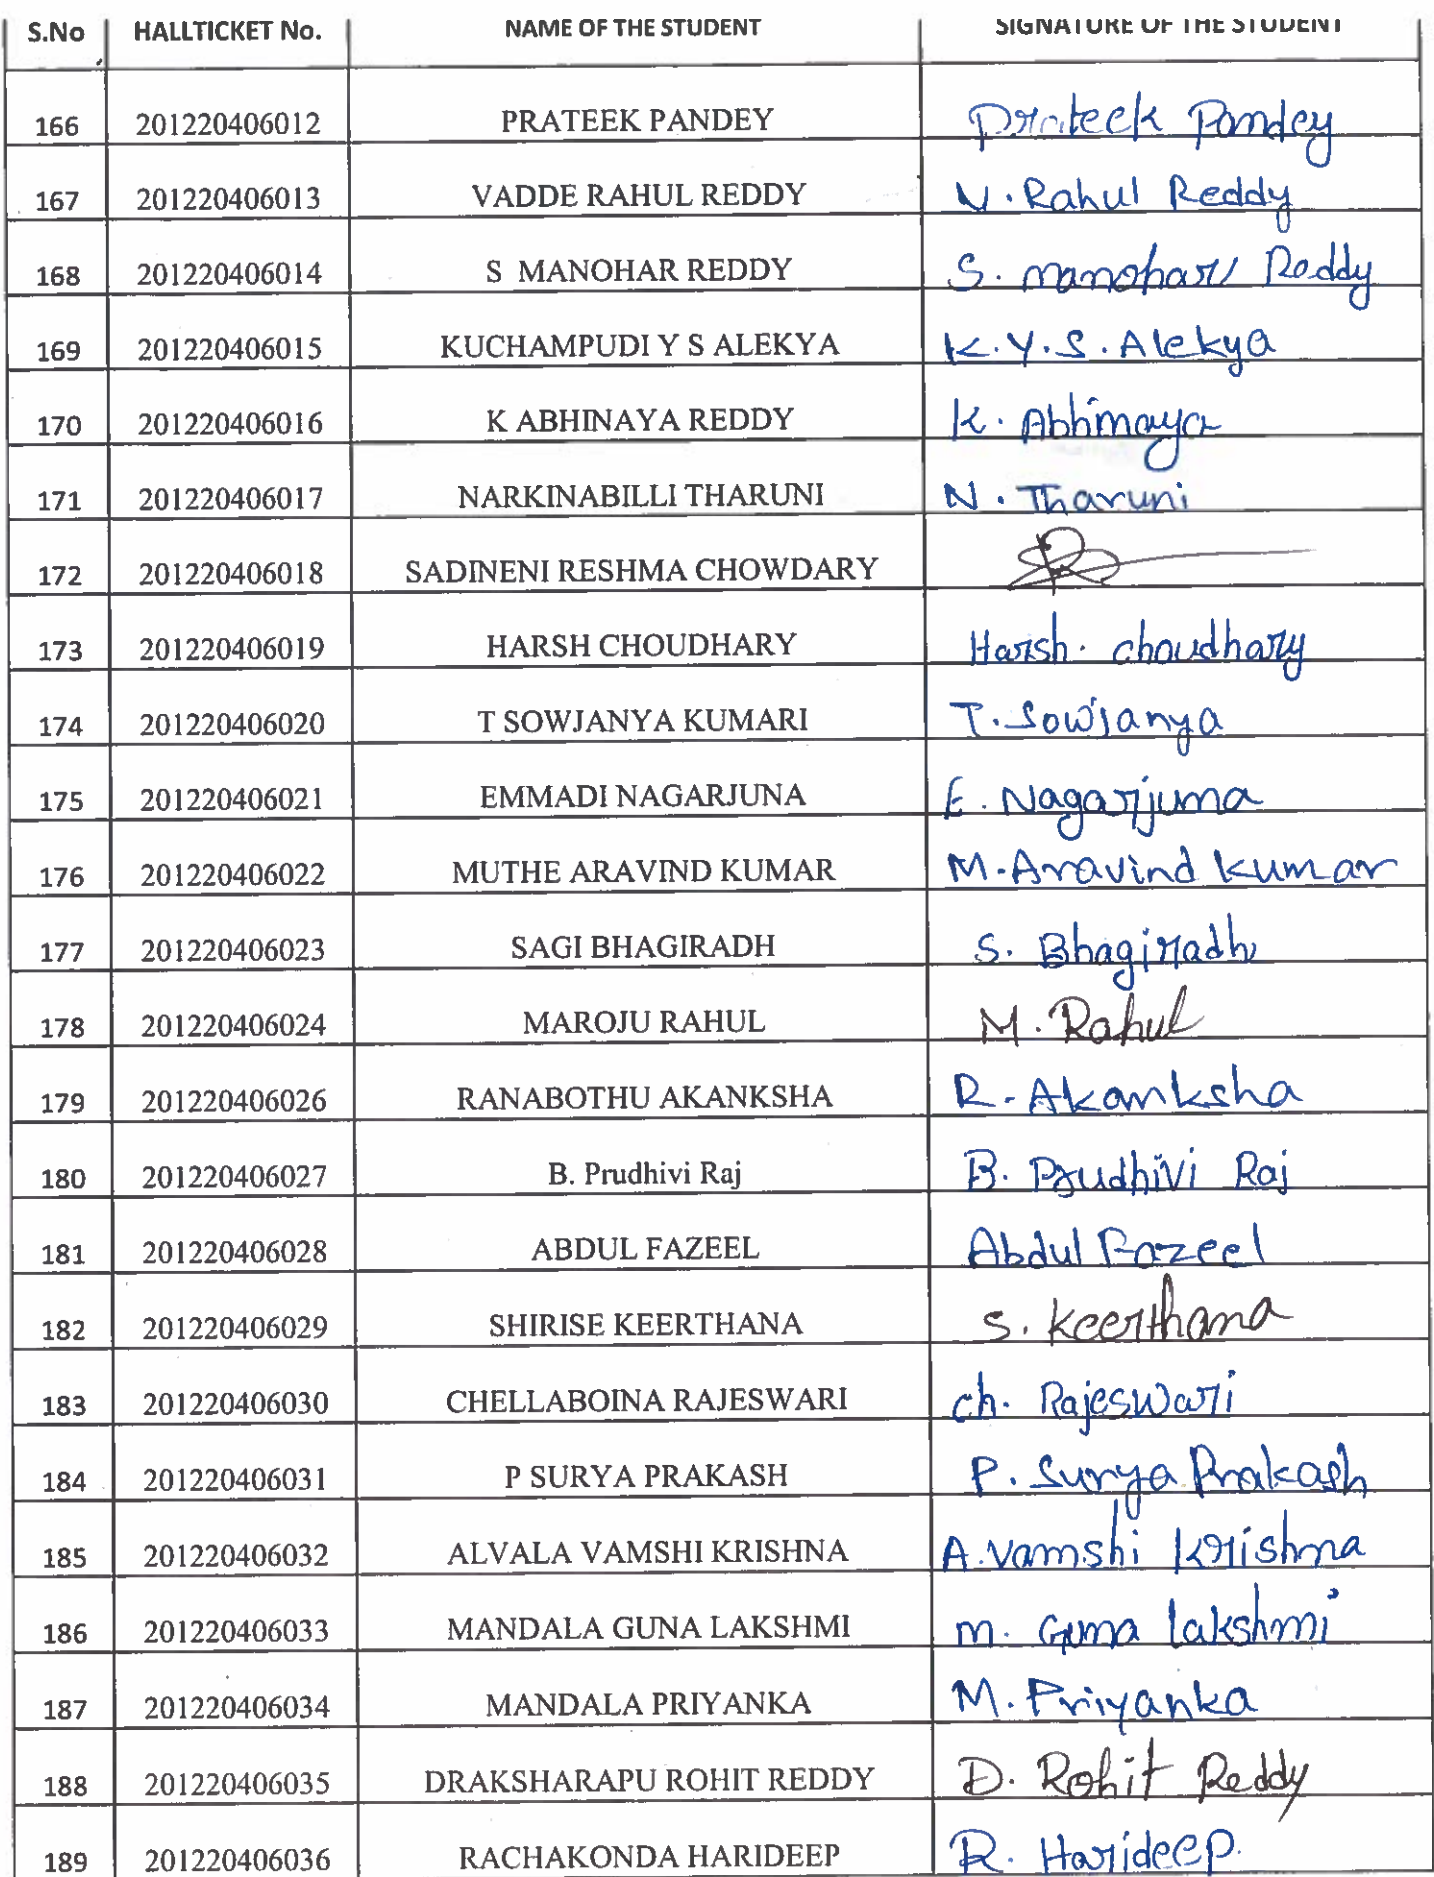 S.No HALLTICKET No. NAME OF THE STUDENT SIGNATURE OF THE STUDENT
166 201220406012 PRATEEK PANDEY Prateek Pandey
167 201220406013 VADDE RAHUL REDDY V. Rahul Reddy
168 201220406014 S MANOHAR REDDY S. manohar Reddy
169 201220406015 KUCHAMPUDI Y S ALEKYA K.Y.S.Alekya
170 201220406016 K ABHINAYA REDDY K. Abhinaya
171 201220406017 NARKINABILLI THARUNI N. Tharuni
172 201220406018 SADINENI RESHMA CHOWDARY
173 201220406019 HARSH CHOUDHARY Harsh. choudhary
174 201220406020 T SOWJANYA KUMARI T. Sowjanya
175 201220406021 EMMADI NAGARJUNA E. Nagarjuna
176 201220406022 MUTHE ARAVIND KUMAR M.Aravind kumar
177 201220406023 SAGI BHAGIRADH S. Bhagiradh
178 201220406024 MAROJU RAHUL M. Rahul
179 201220406026 RANABOTHU AKANKSHA R. Akanksha
180 201220406027 B. Prudhivi Raj B. Prudhivi Raj
181 201220406028 ABDUL FAZEEL Abdul Fazeel
182 201220406029 SHIRISE KEERTHANA S. Keerthana
183 201220406030 CHELLABOINA RAJESWARI ch. Rajeswari
184 201220406031 P SURYA PRAKASH P. Surya Prakash
185 201220406032 ALVALA VAMSHI KRISHNA A.vamshi Krishna
186 201220406033 MANDALA GUNA LAKSHMI m. Guna lakshmi
187 201220406034 MANDALA PRIYANKA M. Priyanka
188 201220406035 DRAKSHARAPU ROHIT REDDY D. Rohit Reddy
189 201220406036 RACHAKONDA HARIDEEP R. Harideep.